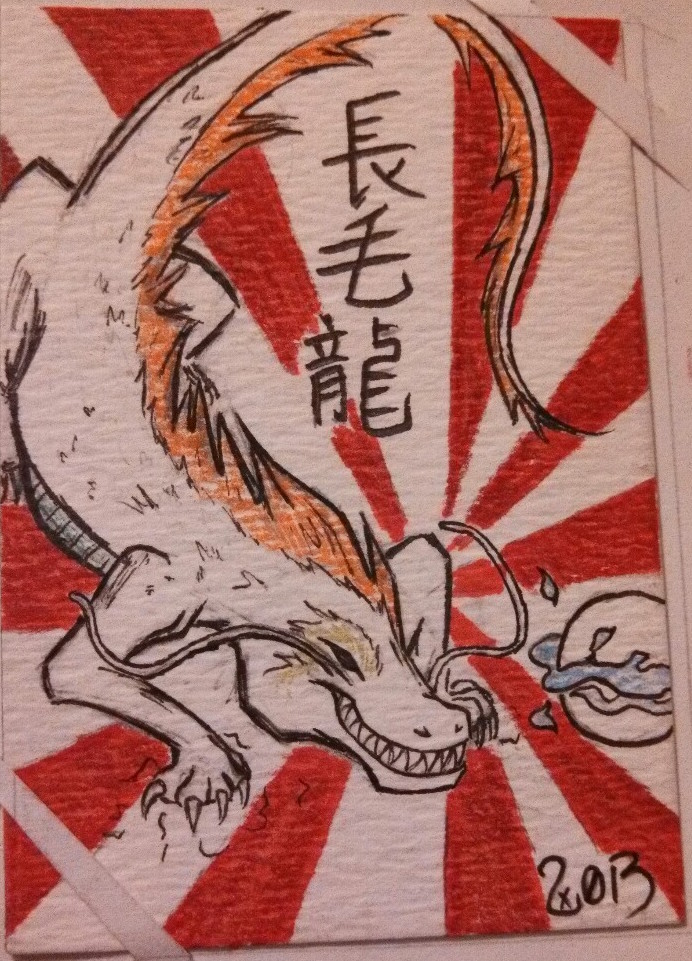 長
毛
龍
2x013